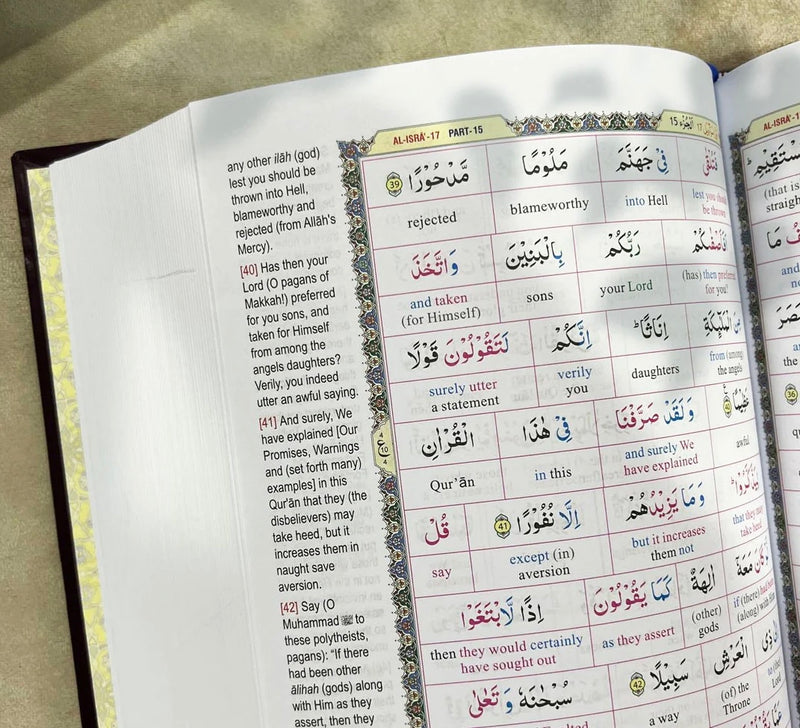 AL-ISRÂ'-17 PART-15
any other ilāh (god)
lest you should be
thrown into Hell,
blameworthy and
rejected (from Allāh's
Mercy).
[40] Has then your
Lord (O pagans of
Makkah!) preferred
for you sons, and
taken for Himself
from among the
angels daughters?
Verily, you indeed
utter an awful saying.
[41] And surely, We
have explained [Our
Promises, Warnings
and (set forth many)
examples] in this
Qur'ān that they (the
disbelievers) may
take heed, but it
increases them in
naught save
aversion.
[42] Say (O
Muhammad ﷺ to
these polytheists,
pagans): "If there
had been other
ālihah (gods) along
with Him as they
assert, then they
فَتُلْقٰى فِيْ جَهَنَّمَ مَلُوْمًا مَّدْحُوْرًا 39
lest you should be thrown into Hell blameworthy rejected
اَفَاَصْفٰىكُمْ رَبُّكُمْ بِالْبَنِيْنَ وَاتَّخَذَ
(has) then preferred for you? your Lord sons and taken (for Himself)
مِنَ الْمَلٰٓئِكَةِ اِنَاثًا ؕ اِنَّكُمْ لَتَقُوْلُوْنَ قَوْلًا
from (among) the angels daughters verily you surely utter a statement
عَظِيْمًا 40 وَلَقَدْ صَرَّفْنَا فِيْ هٰذَا الْقُرْاٰنِ
awful and surely We have explained in this Qur'ān
لِيَذَّكَّرُوْا ؕ وَمَا يَزِيْدُهُمْ اِلَّا نُفُوْرًا 41 قُلْ
that they may take heed but it increases them not except (in) aversion say
كَانَ مَعَهٗ اٰلِهَةٌ كَمَا يَقُوْلُوْنَ اِذًا لَّابْتَغَوْا
if (there) had been (along) with Him (other) gods as they assert then they would certainly have sought out
ذِي الْعَرْشِ سَبِيْلًا 42 سُبْحٰنَهٗ وَتَعٰلٰى
(of) the Throne a way
AL-ISRÂ'-1